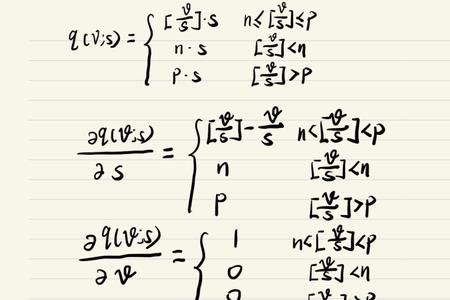 q(v;s) = { [v/s]·s n≤[v/s]≤p
n·s [v/s]<n
p·s [v/s]>p
∂q(v;s)/∂s = { [v/s]-v/s n<[v/s]<p
n [v/s]<n
p [v/s]>p
∂q(v;s)/∂v = { 1 n<[v/s]<p
0 [v/s]<n
0 [v/s]>p